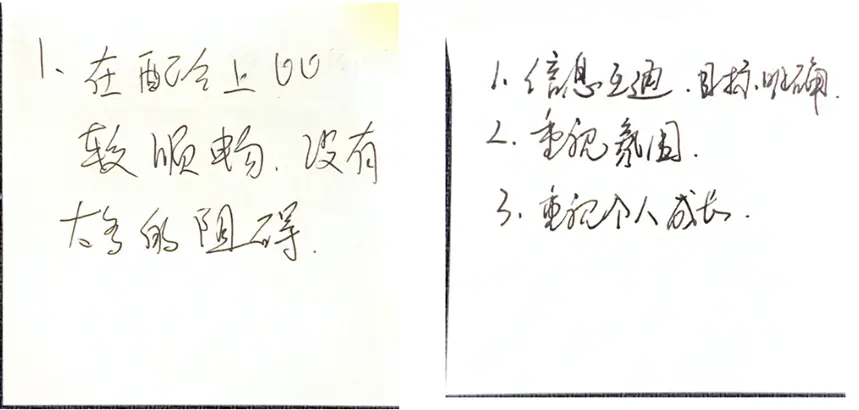 1、在配合上
较顺畅.没有
太多的阻碍.
1.信息互通.目标明确.
2.重视氛围.
3.重视个人成长.